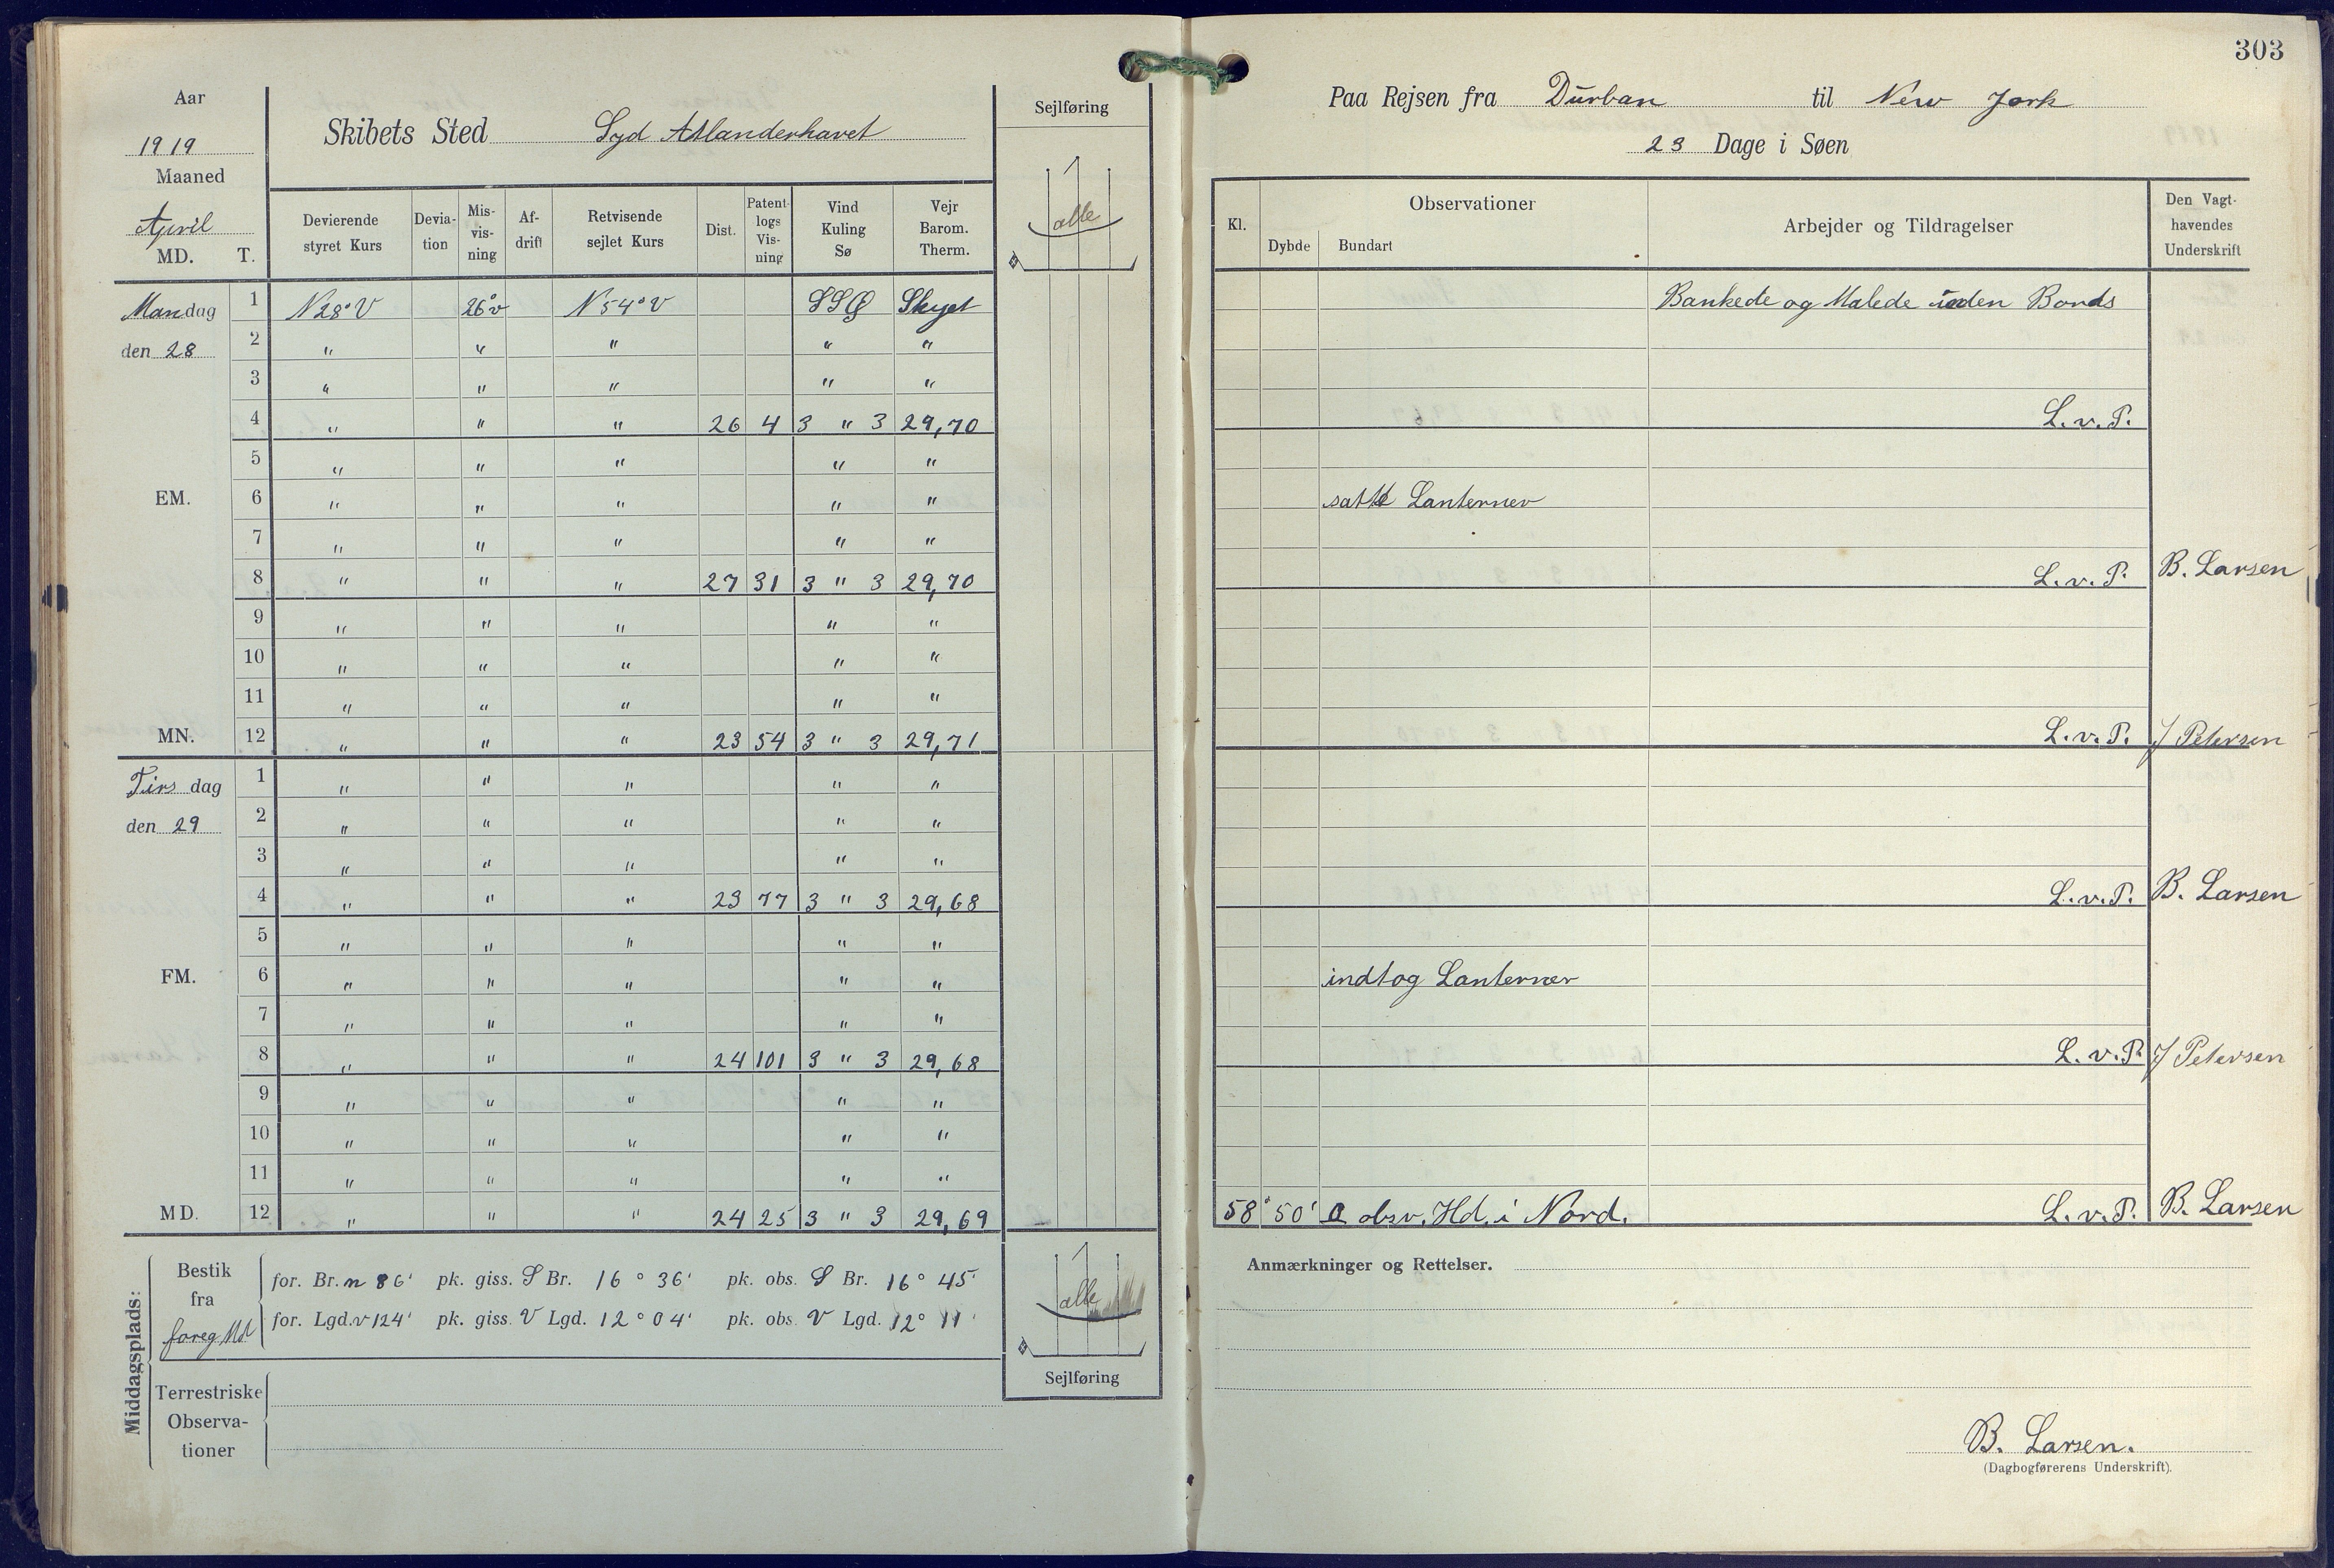 303
Aar
1919
Maaned
April
MD. T.
Skibets Sted Syd Atlanderhavet
Sejlføring
alle
Paa Rejsen fra Durban til New York
23 Dage i Søen
Devierende styret Kurs Devia-tion Mis-vis-ning Af-drift Retvisende sejlet Kurs Dist. Patent-logs Vis-ning Vind Kuling Sø Vejr Barom. Therm.
Kl. Observationer Dybde Bundart Arbejder og Tildragelser Den Vagt-havendes Underskrift
Mandag 1 N28°V 26°v N54°V SSØ Skyet Bankede og Malede inden Bords
den 28 2 " " " " "
3 " " " " "
4 " " " 26 4 3 " 3 29,70 L.v.P.
5 " " " " "
EM. 6 " " " " " satte Lanterner
7 " " " " "
8 " " " 27 31 3 " 3 29,70 L.v.P. B. Larsen
9 " " " " "
10 " " " " "
11 " " " " "
MN. 12 " " " 23 54 3 " 3 29,71 L.v.P. J Petersen
Tirsdag 1 " " " " "
den 29 2 " " " " "
3 " " " " "
4 " " " 23 77 3 " 3 29,68 L.v.P. B. Larsen
5 " " " " "
FM. 6 " " " " " indtog Lanterner
7 " " " " "
8 " " " 24 101 3 " 3 29,68 L.v.P. J Petersen
9 " " " " "
10 " " " " "
11 " " " " "
MD. 12 " " " 24 25 3 " 3 29,69 58° 50' obsv. Hd. i Nord. L.v.P. B. Larsen
Middagsplads:
Bestik fra foreg Md
for. Br. n 86' pk. giss. S Br. 16° 36' pk. obs. S Br. 16° 45'
for. Lgd. v 124' pk. giss. V Lgd. 12° 04' pk. obs. V Lgd. 12° 11'
Terrestriske
Observa-
tioner
alle
Sejlføring
Anmærkninger og Rettelser.
B. Larsen.
(Dagbogførerens Underskrift).